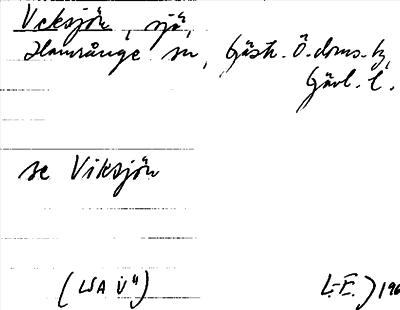 Veksjön, sjö,
Hamrånge sn, Gästr. Ö. doms. tg,
Gävl. l.
se Viksjön
(LSA V 4)
L.-E.) 196